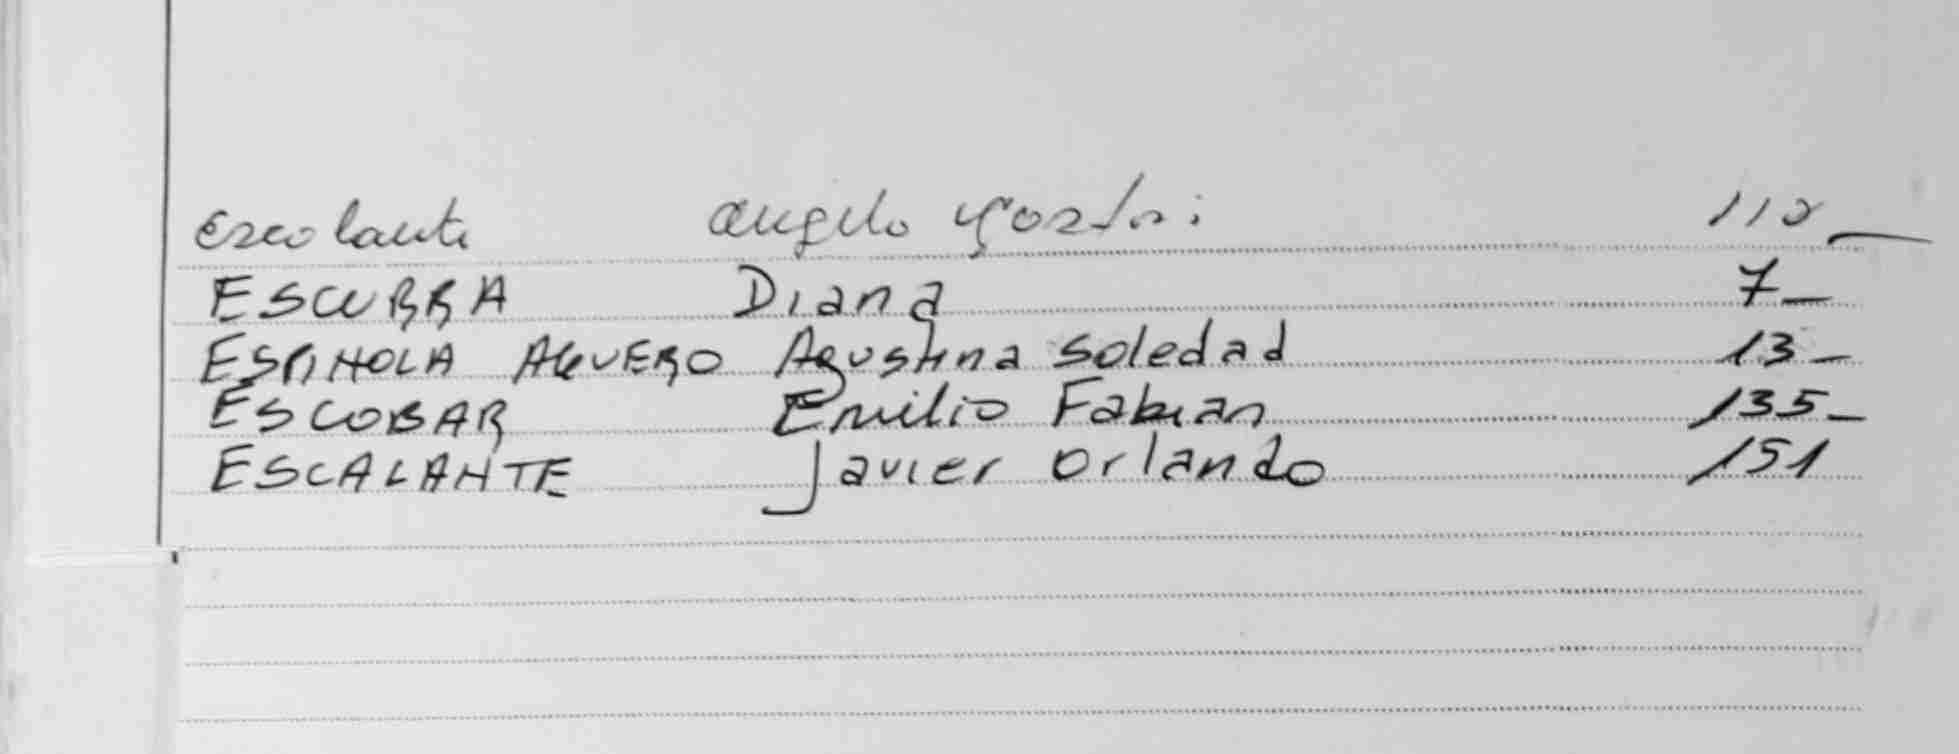 Escolante Angelo
ESCURRA Diana 7_
ESPINOLA AGUERO Agustina Soledad 13_
ESCOBAR Emilio Fabian 135_
ESCALANTE Javier Orlando 151